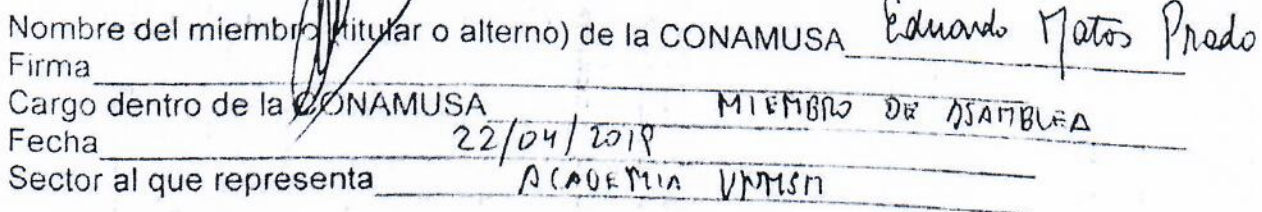 Nombre del miembro (titular o alterno) de la CONAMUSA Eduardo Matos Prado
Firma
Cargo dentro de la CONAMUSA MIEMBRO DE ASAMBLEA
Fecha 22/04/2019
Sector al que representa ACADEMIA UNMSM